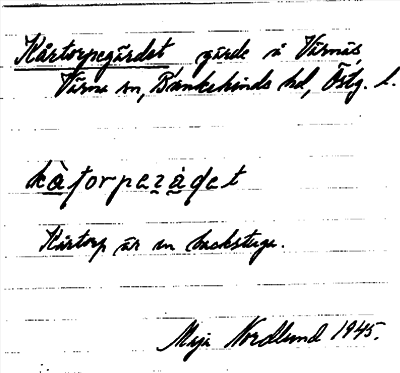 Kårtorpegärdet gärde å Värnäs,
Värna sn, Bankekinds hd, Östg. l.
kå̀torpeʐàdet
Kårtorp är en backstuga.
Maja Nordlund 1945.